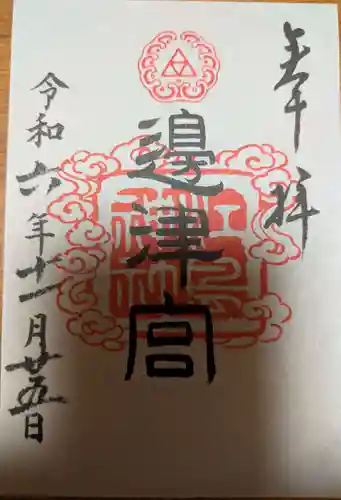 奉拝
邊津宮
令和六年十一月廿五日